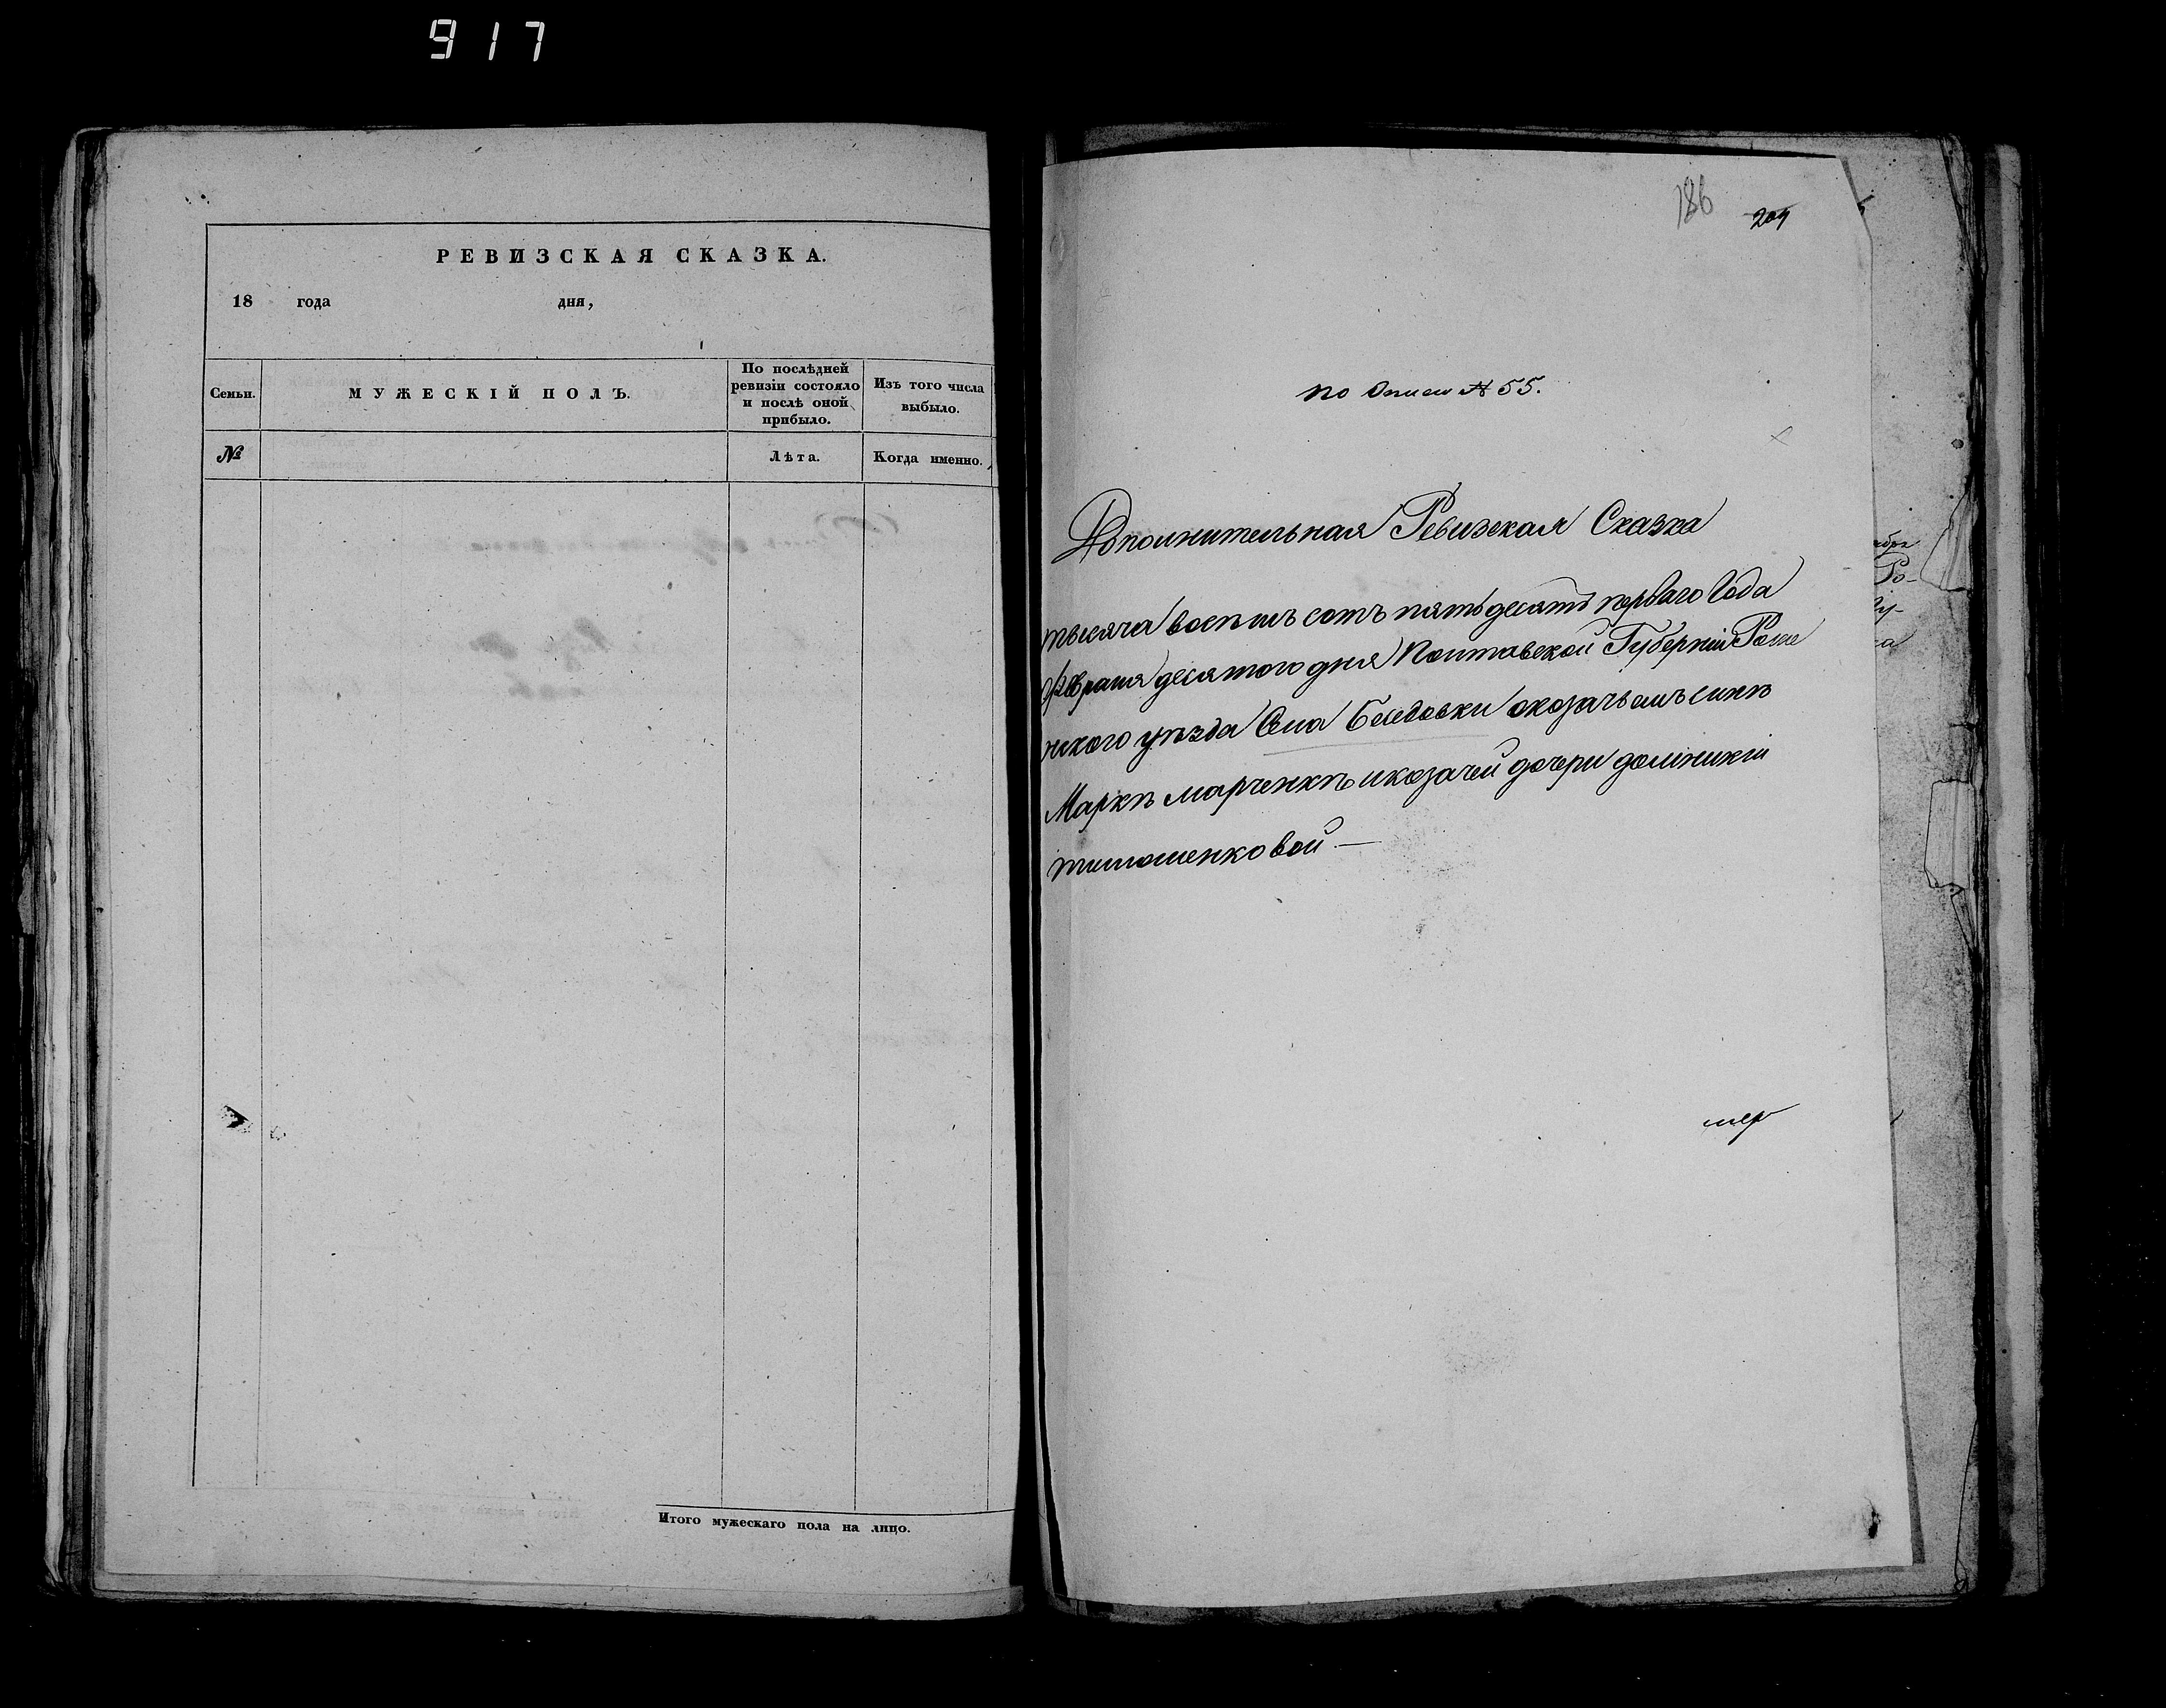 917
РЕВИЗСКАЯ СКАЗКА.
18 года дня,
Семьи.
МУЖЕСКІЙ ПОЛЪ.
По послѣдней ревизіи состояло и послѣ оной прибыло.
Изъ того числа выбыло.
№
Лѣта.
Когда именно.
Итого мужескаго пола на лицо.
186
204
по Описи № 55.
Дополнительная Ревизская Сказка
тысяча восемь сотъ пятьдесятъ перваго Года
февраля десятого дня Полтавской Губерніи Роме
нского уѣзда Села Беседовки оказачьемъ сынѣ
Маркѣ марченкѣ иказачей дочери домникіи
тимошенковой —